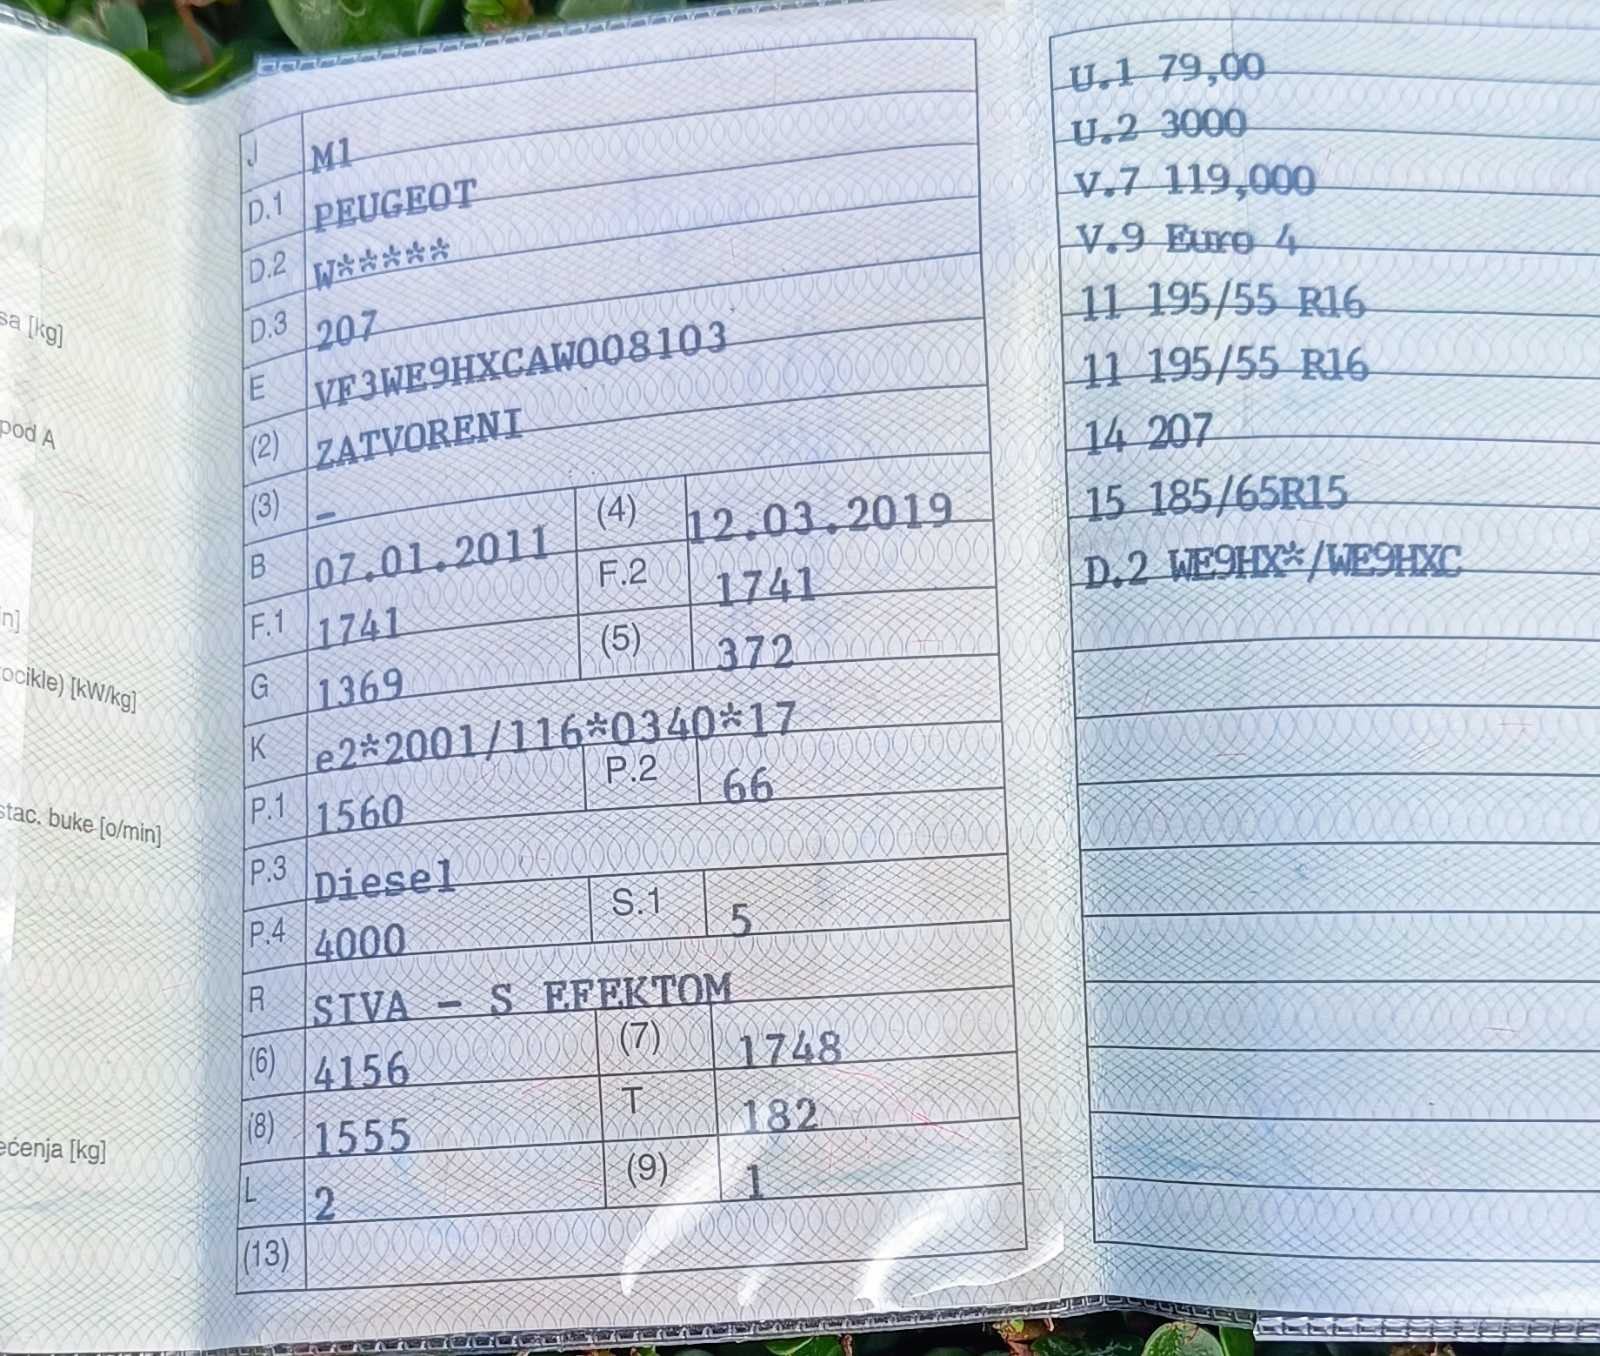 sa [kg]
pod A
n]
ocikle) [kW/kg]
stac. buke [o/min]
ećenja [kg]
J M1
D.1 PEUGEOT
D.2 W*****
D.3 207
E VF3WE9HXCAW008103
(2) ZATVORENI
(3) – (4) 12.03.2019
B 07.01.2011 F.2 1741
F.1 1741 (5) 372
G 1369
K e2*2001/116*0340*17
P.1 1560 P.2 66
P.3 Diesel
P.4 4000 S.1 5
R SIVA – S EFEKTOM
(6) 4156 (7) 1748
(8) 1555 T 182
L 2 (9) 1
(13)
U.1 79,00
U.2 3000
V.7 119,000
V.9 Euro 4
11 195/55 R16
11 195/55 R16
14 207
15 185/65R15
D.2 WE9HX*/WE9HXC